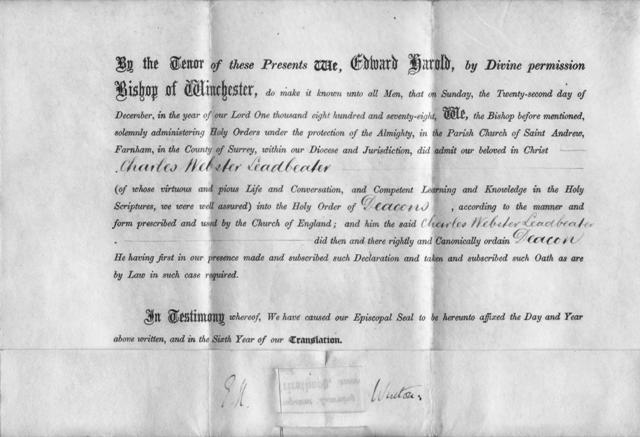 By the Tenor of these Presents We, Edward Harold, by Divine permission
Bishop of Winchester, do make it known unto all Men, that on Sunday, the Twenty-second day of
December, in the year of our Lord One thousand eight hundred and seventy-eight, We, the Bishop before mentioned,
solemnly administering Holy Orders under the protection of the Almighty, in the Parish Church of Saint Andrew,
Farnham, in the County of Surrey, within our Diocese and Jurisdiction, did admit our beloved in Christ
Charles Webster Leadbeater
(of whose virtuous and pious Life and Conversation, and Competent Learning and Knowledge in the Holy
Scriptures, we were well assured) into the Holy Order of Deacons, according to the manner and
form prescribed and used by the Church of England; and him the said Charles Webster Leadbeater
did then and there rightly and Canonically ordain Deacon
He having first in our presence made and subscribed such Declaration and taken and subscribed such Oath as are
by Law in such case required.
In Testimony whereof, We have caused our Episcopal Seal to be hereunto affixed the Day and Year
above written, and in the Sixth Year of our Translation.
E. H. Winton: